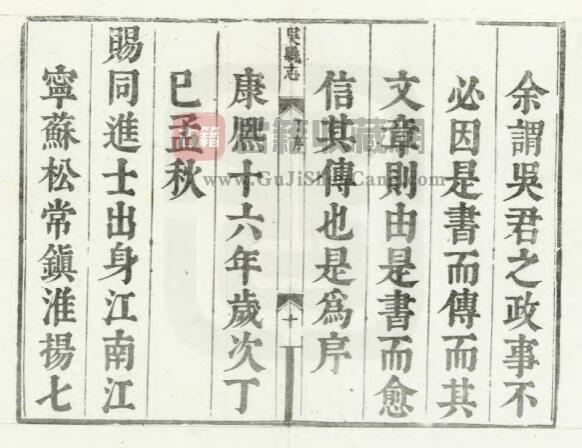 余謂吳君之政事不
必因是書而傳而其
文章則由是書而愈
信其傳也是爲序
吳縣志
序
十
康熈十六年歲次丁
巳孟秋
賜同進士出身江南江
寧蘇松常鎮淮揚七
www.GuJiShuCang.com